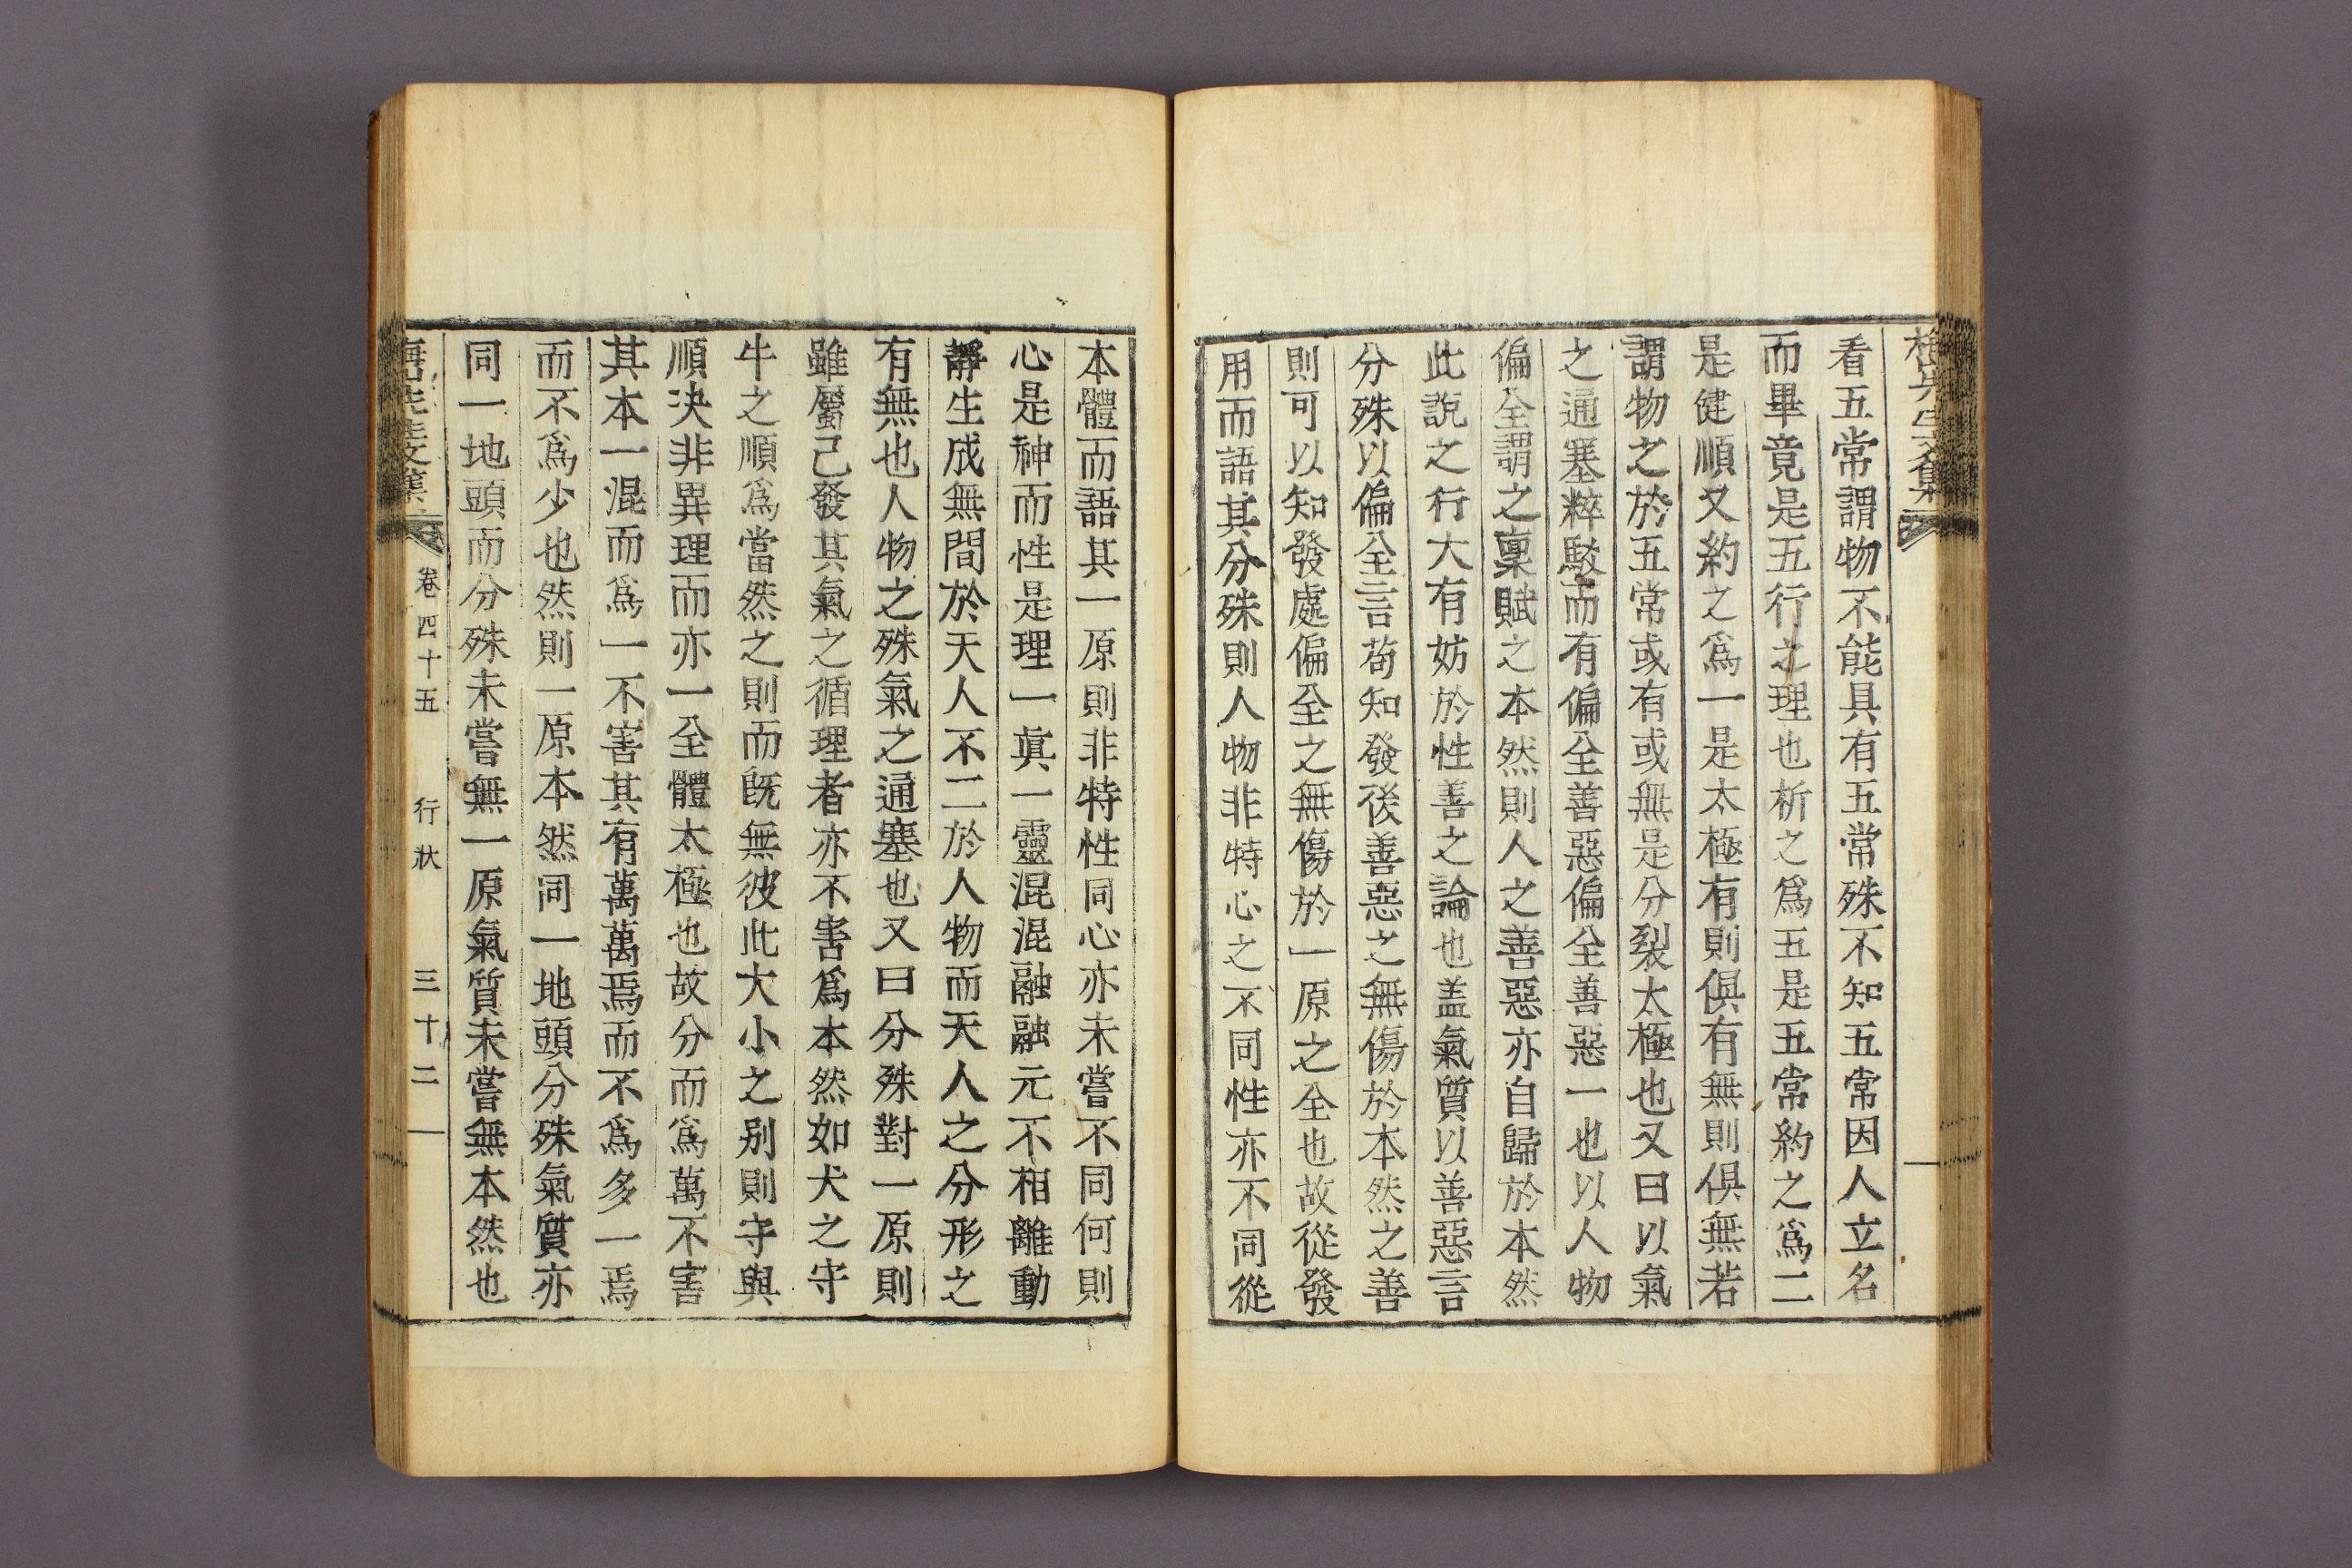 看五常謂物不能具有五常殊不知五常因人立名
而畢竟是五行之理也析之爲五是五常約之爲二
是健順又約之爲一是太極有則俱有無則俱無若
謂物之於五常或有或無是分裂太極也又曰以氣
之通塞粹駁而有偏全善惡偏全善惡一也以人物
偏全謂之稟賦之本然則人之善惡亦自歸於本然
此說之行大有妨於性善之論也盖氣質以善惡言
分殊以偏全言苟知發後善惡之無傷於本然之善
則可以知發處偏全之無傷於一原之全也故從發
用而語其分殊則人物非特心之不同性亦不同從
本體而語其一原則非特性同心亦未嘗不同何則
心是神而性是理一眞一靈混混融融元不相離動
靜生成無間於天人不二於人物而天人之分形之
有無也人物之殊氣之通塞也又曰分殊對一原則
雖屬已發其氣之循理者亦不害爲本然如犬之守
牛之順爲當然之則而旣無彼此大小之别則守與
順决非異理而亦一全體太極也故分而爲萬不害
其本一混而爲一不害其有萬萬焉而不爲多一焉
而不爲少也然則一原本然同一地頭分殊氣質亦
同一地頭而分殊未嘗無一原氣質未嘗無本然也
卷四十五 行狀 三十二